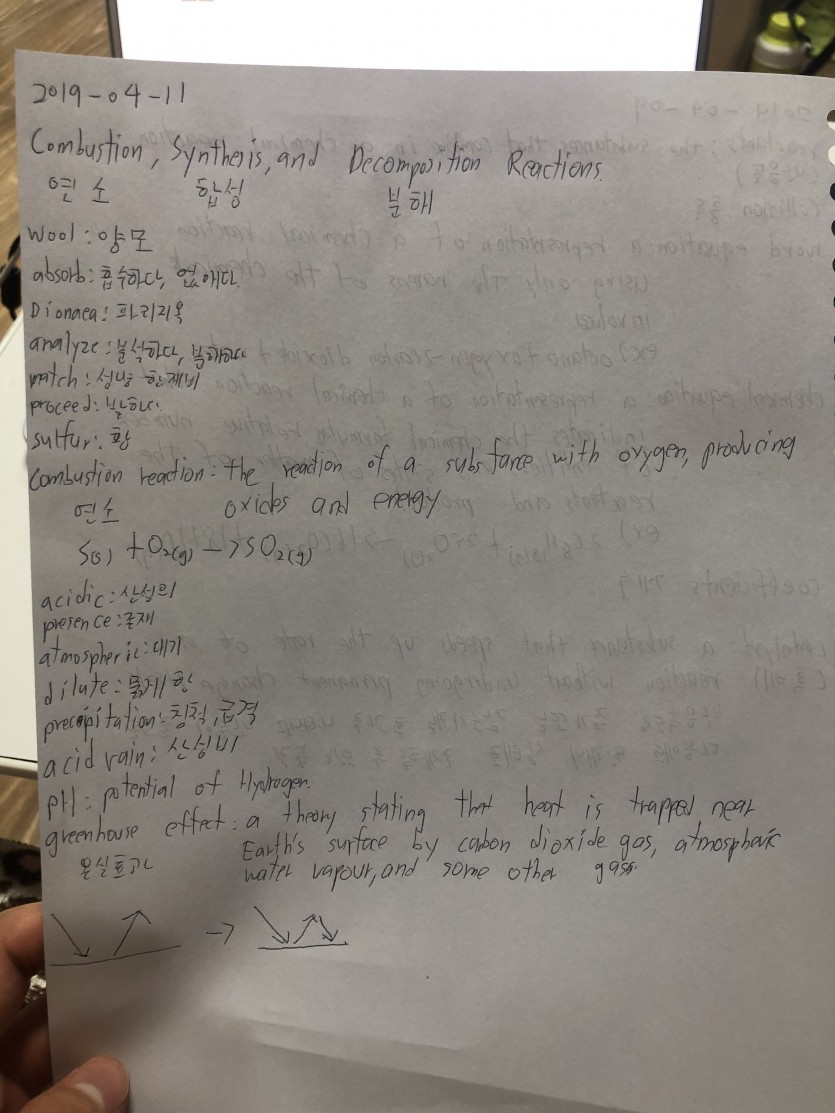 2019-04-11
Combustion, Synthesis, and Decomposition Reactions.
연소 합성 분해
Wool: 양모
absorb: 흡수하다, 없애다.
Dionaea: 파리지옥
analyze: 분석하다, 분해하다
match: 성냥 한개비
proceed:
sulfur: 황
Combustion reaction: the reaction of a substance with oxygen, producing
연소 oxides and energy
S(s) + O2(g) -> SO2(g)
acidic: 산성의
presence: 존재
atmospheric: 대기
dilute: 묽게 함
precipitation: 침적, 급격
acid rain: 산성비
pH: potential of Hydrogen.
greenhouse effect: a theory stating that heat is trapped near
Earth's surface by carbon dioxide gas, atmospheric
온실효과 water vapour, and some other gass.
->